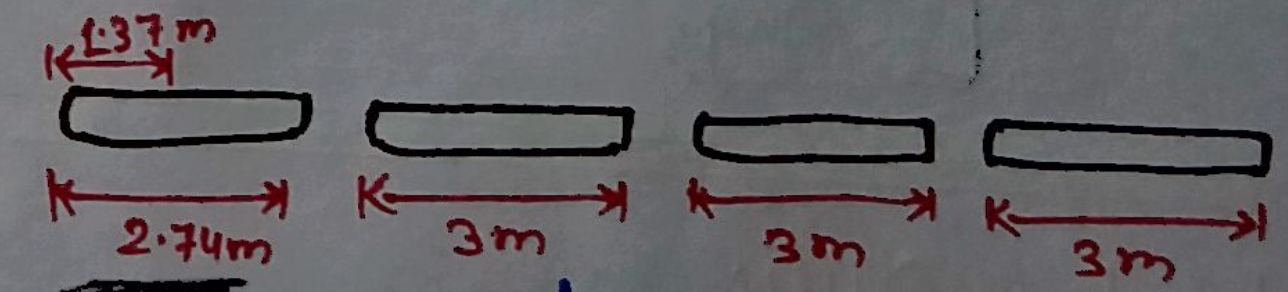 1.37 m
2.74m 3m 3m 3m